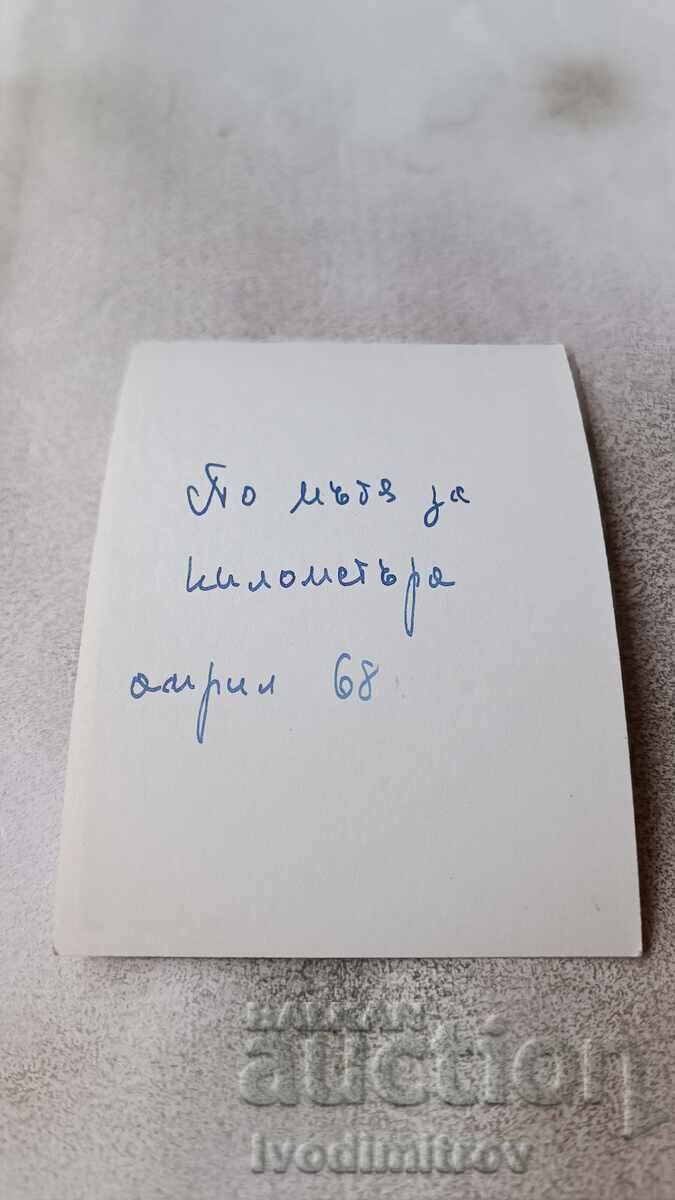 По пътя за
километъра
април 68
BALKAN
auction
Ivodimitrov